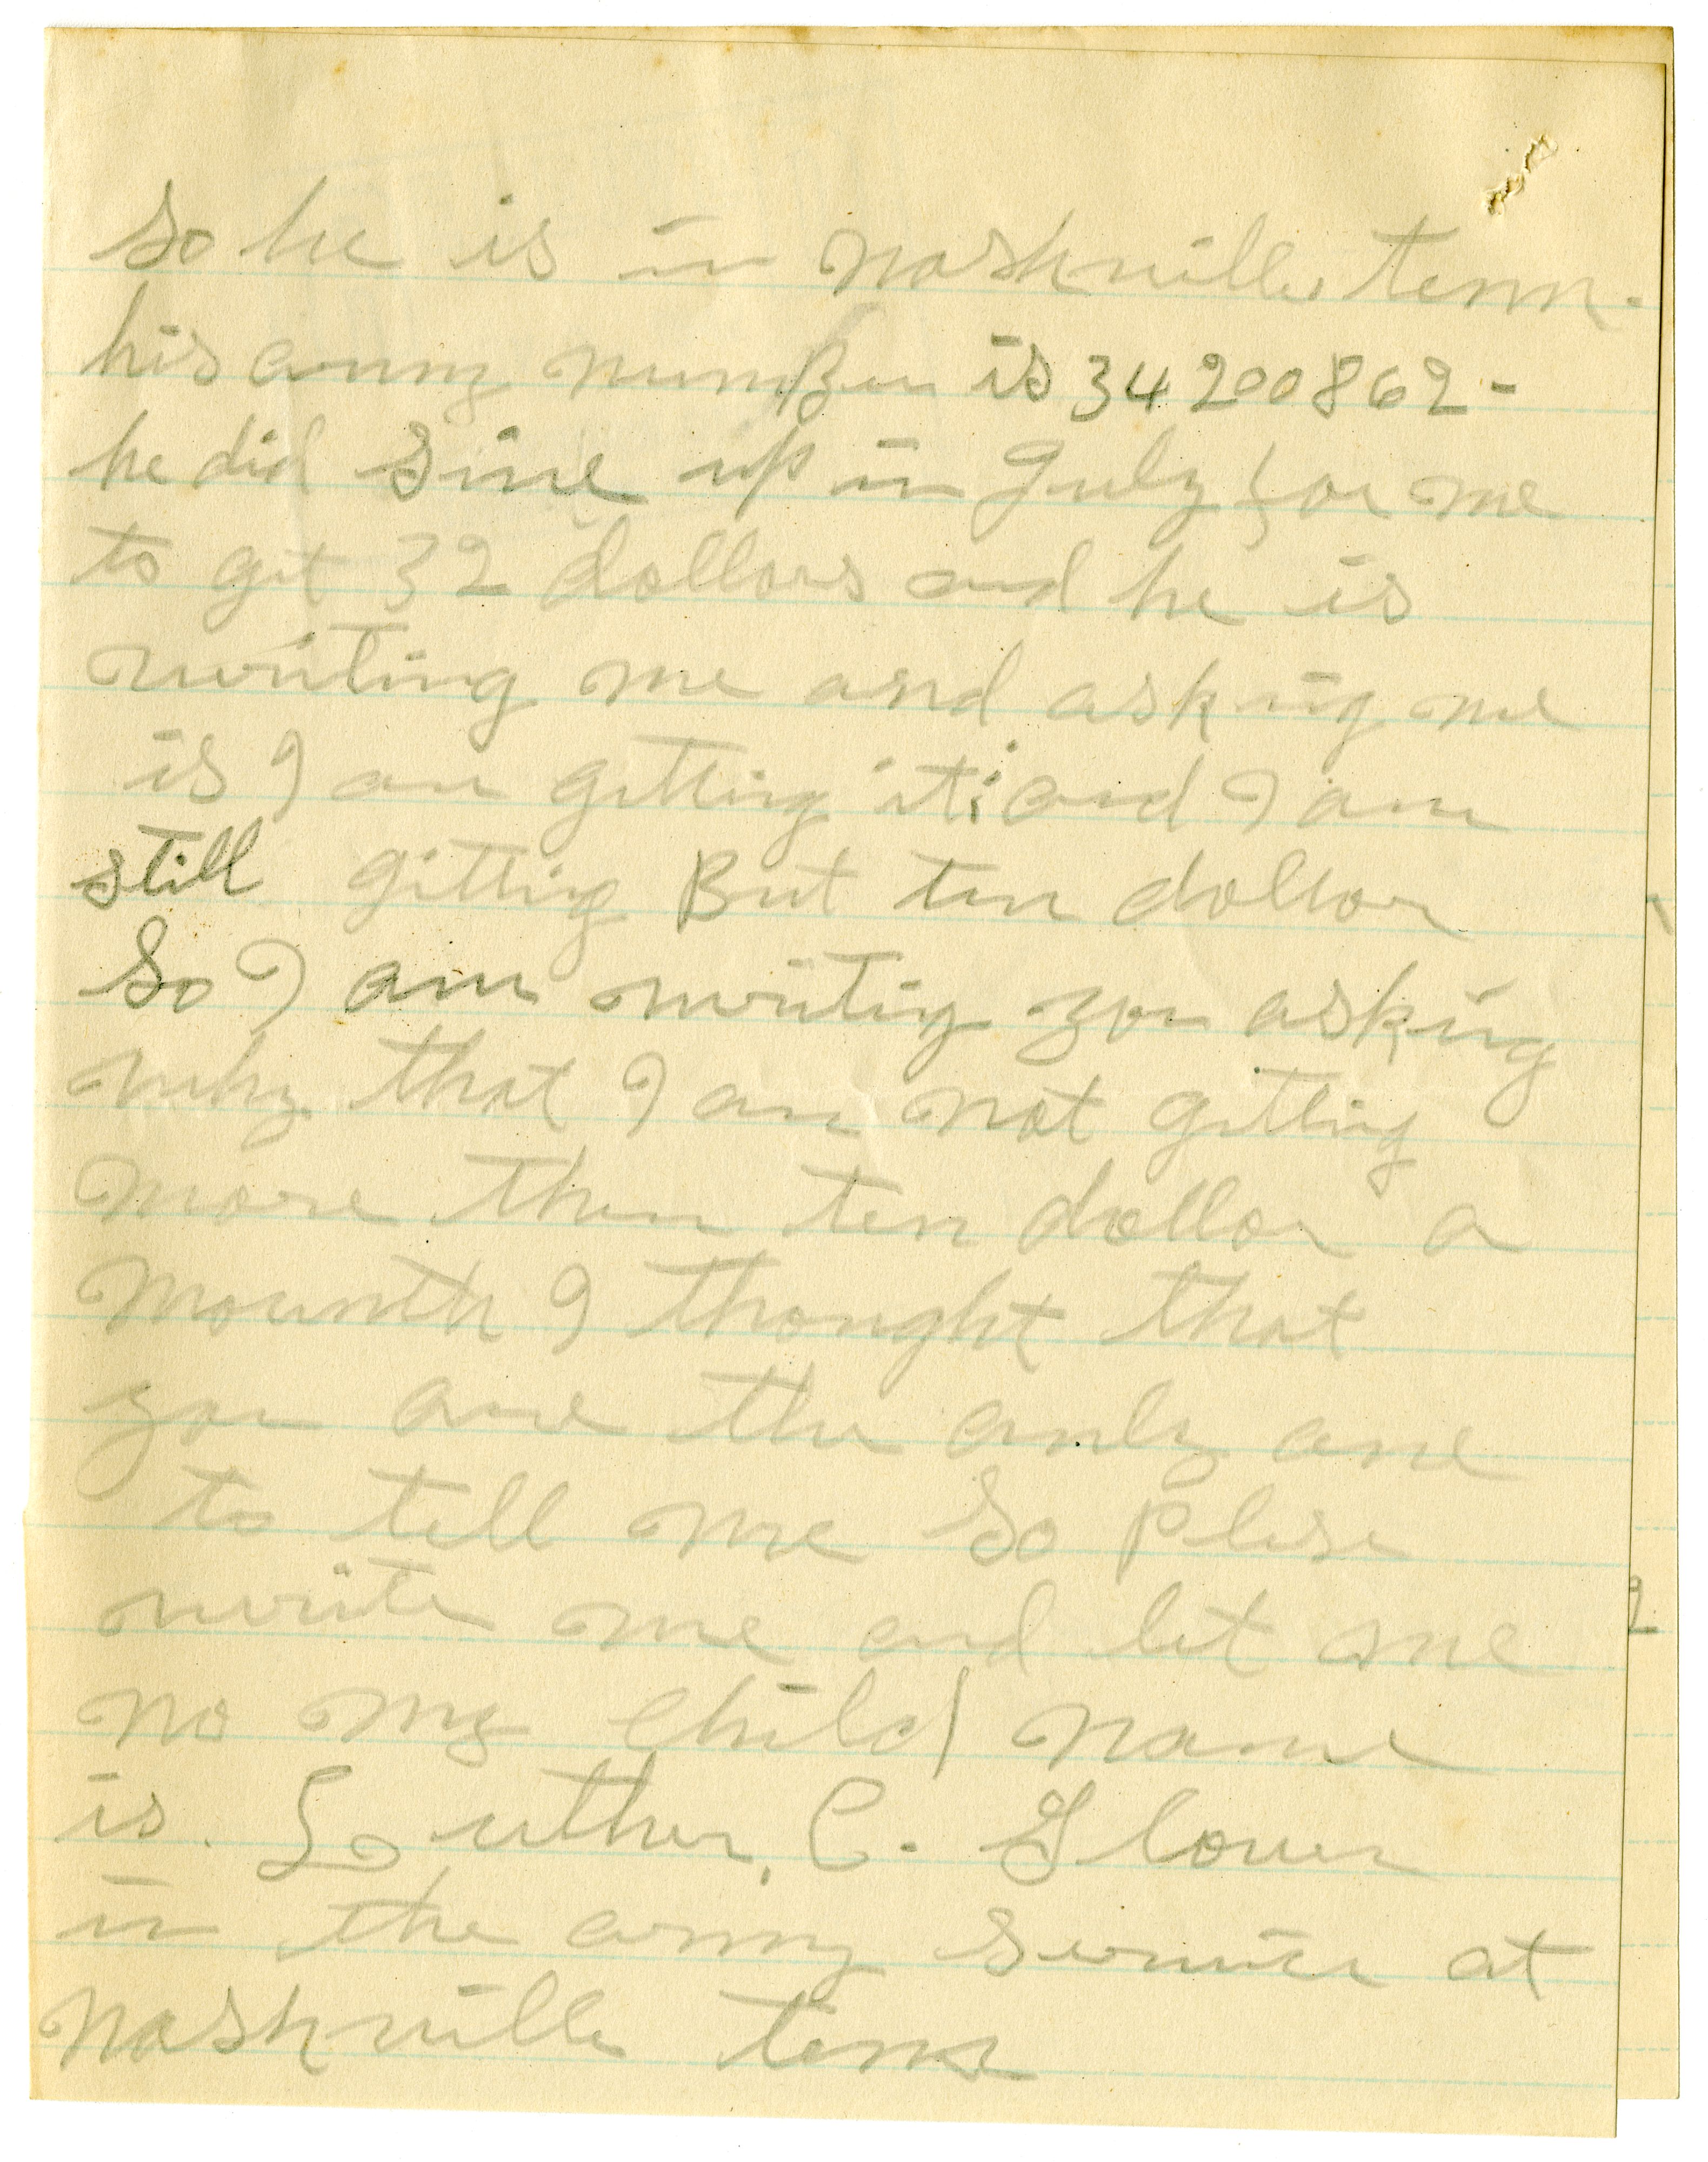 So he is in nashville, tenn.
his army number is 34200862-
he did sine up in July for me
to git 32 dollars and he is
writing me and asking me
is I am gitting it: and I am
still gitting But ten dollar
So I am writing you asking
why that I am not gitting
more then ten dollar a
mounth I thought that
you are the only one
to tell me So plese
write me and let me
no my child name
is. Luther, C. Glover
in the army Service at
nashville tenn